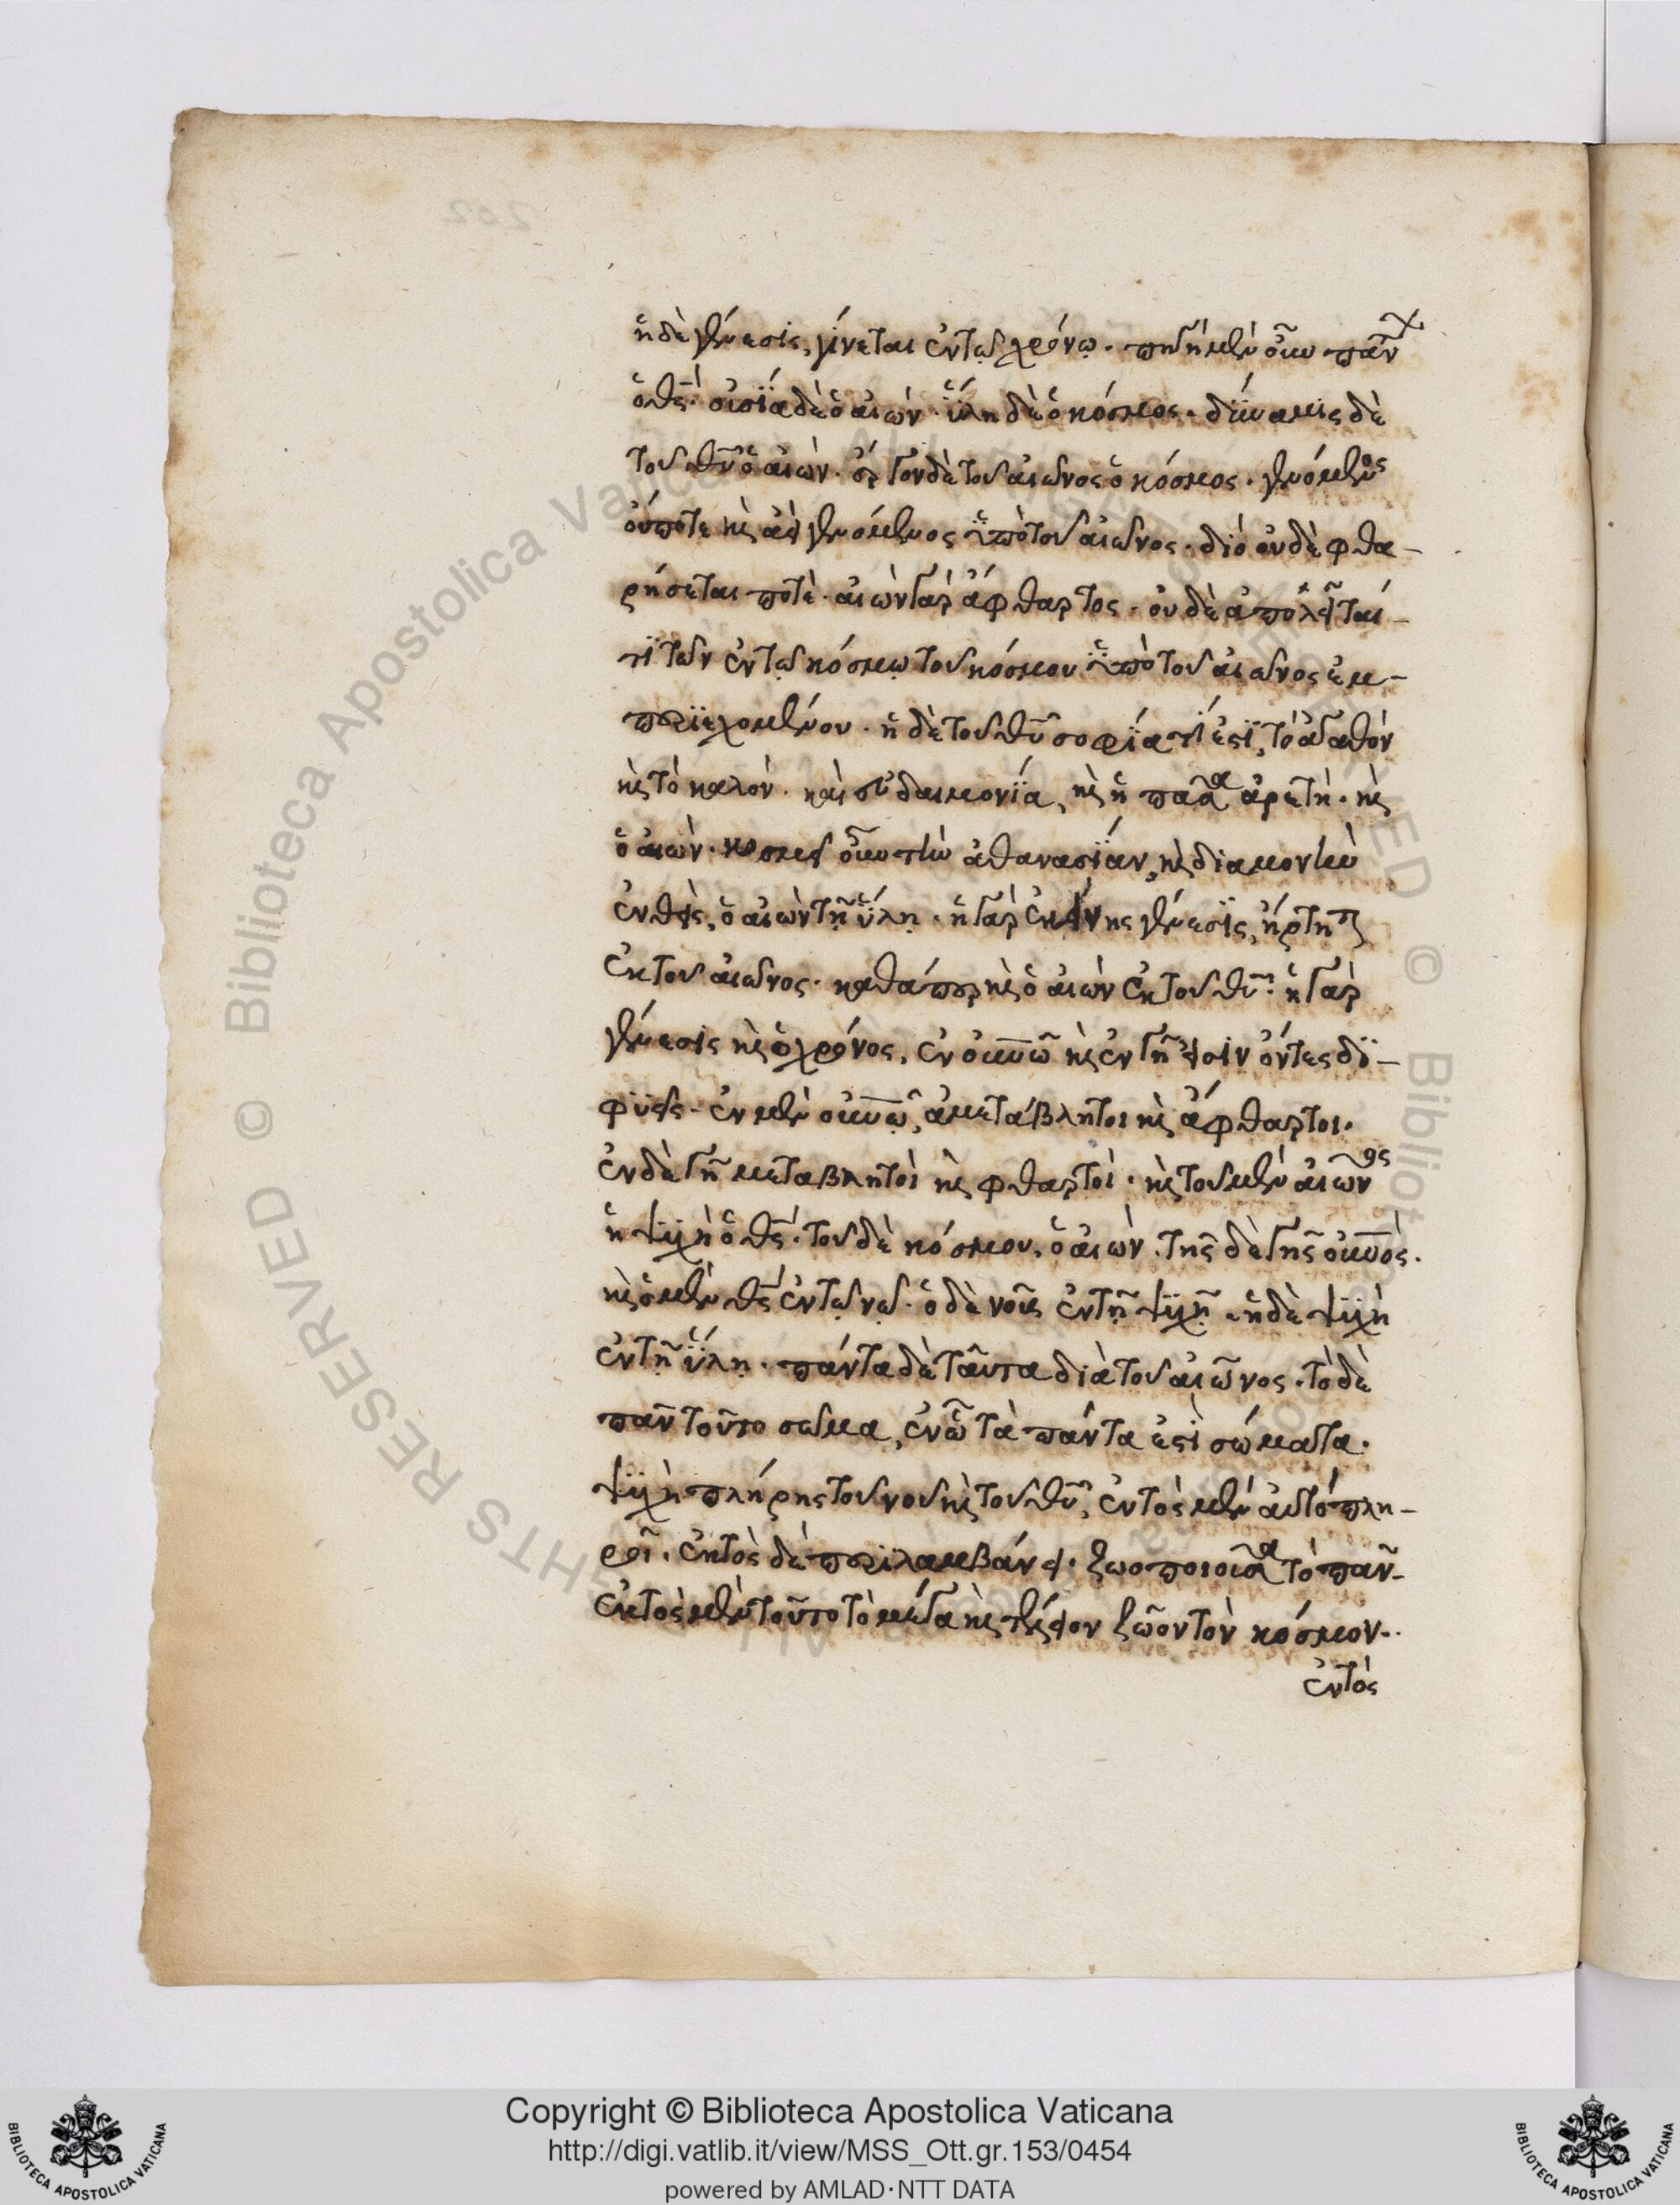 ἡ δὲ γένεσις, γίνεται ἐν τῷ χρόνῳ. πηγὴ μὲν οὖν πάντων
ὁ θς. οὐσία δὲ ὁ αἰών. ὕλη δὲ ὁ κόσμος. δύναμις δὲ
τοῦ θυ ὁ αἰών. ἔργον δὲ τοῦ αἰῶνος ὁ κόσμος. γενόμενος
οὔποτε κὶ ἀεὶ γενόμενος ὑπὸ τοῦ αἰῶνος. διὸ οὐδὲ φθα-
ρήσεται ποτὲ. αἰὼν γὰρ ἄφθαρτος. οὐδὲ ἀπολεῖται
τὶ τῶν ἐν τῷ κόσμῳ τοῦ κόσμου ὑπὸ τοῦ αἰῶνος ἐμ-
περιεχομένου. ἡ δὲ τοῦ θυ σοφία τί ἐστι, τὸ ἀγαθὸν
κὶ τὸ καλὸν. καὶ εὐδαιμονία, κὶ ἡ πᾶσα ἀρετὴ. κὶ
ὁ αἰών. κοσμεῖ οὖν τὴν ἀθανασίαν, κὶ διαμονὴν
ἐνθεὶς, ὁ αἰὼν τῇ ὕλῃ. ἡ γὰρ ἐκείνης γένεσις, ἤρτηται
ἐκ τοῦ αἰῶνος. καθάπερ κὶ ὁ αἰὼν ἐκ τοῦ θυ. ἡ γὰρ
γένεσις κὶ ὁ χρόνος, ἐν οὐνῶ κὶ ἐν γῆ εἰσιν ὄντες δι-
φυεῖς. ἐν μὲν οὐνῶ, ἀμετάβλητοι κὶ ἄφθαρτοι.
ἐν δὲ γῆ μεταβλητοὶ κὶ φθαρτοὶ. κὶ τοῦ μὲν αἰῶνος
ἡ ψυχὴ ὁ θς. τοῦ δὲ κόσμου, ὁ αἰών. τῆς δὲ γῆς οὐνὸς.
κὶ ὁ μὲν θς ἐν τῷ νῷ. ὁ δὲ νοῦς ἐν τῇ ψυχῇ. ἡ δὲ ψυχὴ
ἐν τῇ ὕλῃ. πάντα δὲ ταῦτα διὰ τοῦ αἰῶνος. τὸ δὲ
πᾶν τοῦτο σῶμα, ἐν ᾧ τὰ πάντα ἐστὶ σώματα.
ψυχὴ πλήρης τοῦ νοῦ κὶ τοῦ θυ, ἐντὸς μὲν αὐτὸ πλη-
ροῖ. ἐκτὸς δὲ περιλαμβάνει. ζωοποιοῦσα τὸ πᾶν.
ἐκτὸς μὲν τοῦτο τὸ μέγα κὶ τέλειον ζῶον τὸν κόσμον.
ἐντὸς
Copyright © Biblioteca Apostolica Vaticana
http://digi.vatlib.it/view/MSS_Ott.gr.153/0454
powered by AMLAD·NTT DATA